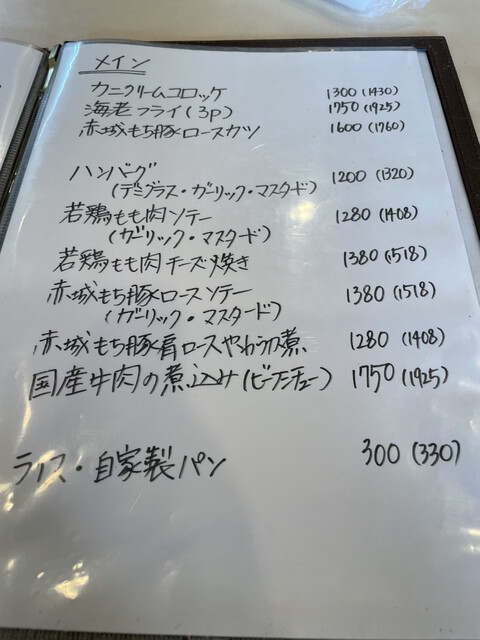 メイン
カニクリームコロッケ 1300 (1430)
海老フライ (3p) 1750 (1925)
赤城もち豚ロースカツ 1600 (1760)
ハンバーグ 1200 (1320)
(デミグラス・ガーリック・マスタード)
若鶏もも肉ソテー 1280 (1408)
(ガーリック・マスタード)
若鶏もも肉チーズ焼き 1380 (1518)
赤城もち豚ロースソテー 1380 (1518)
(ガーリック・マスタード)
赤城もち豚肩ロースやわらか煮 1280 (1408)
国産牛肉の煮込み (ビーフシチュー) 1750 (1925)
ライス・自家製パン 300 (330)